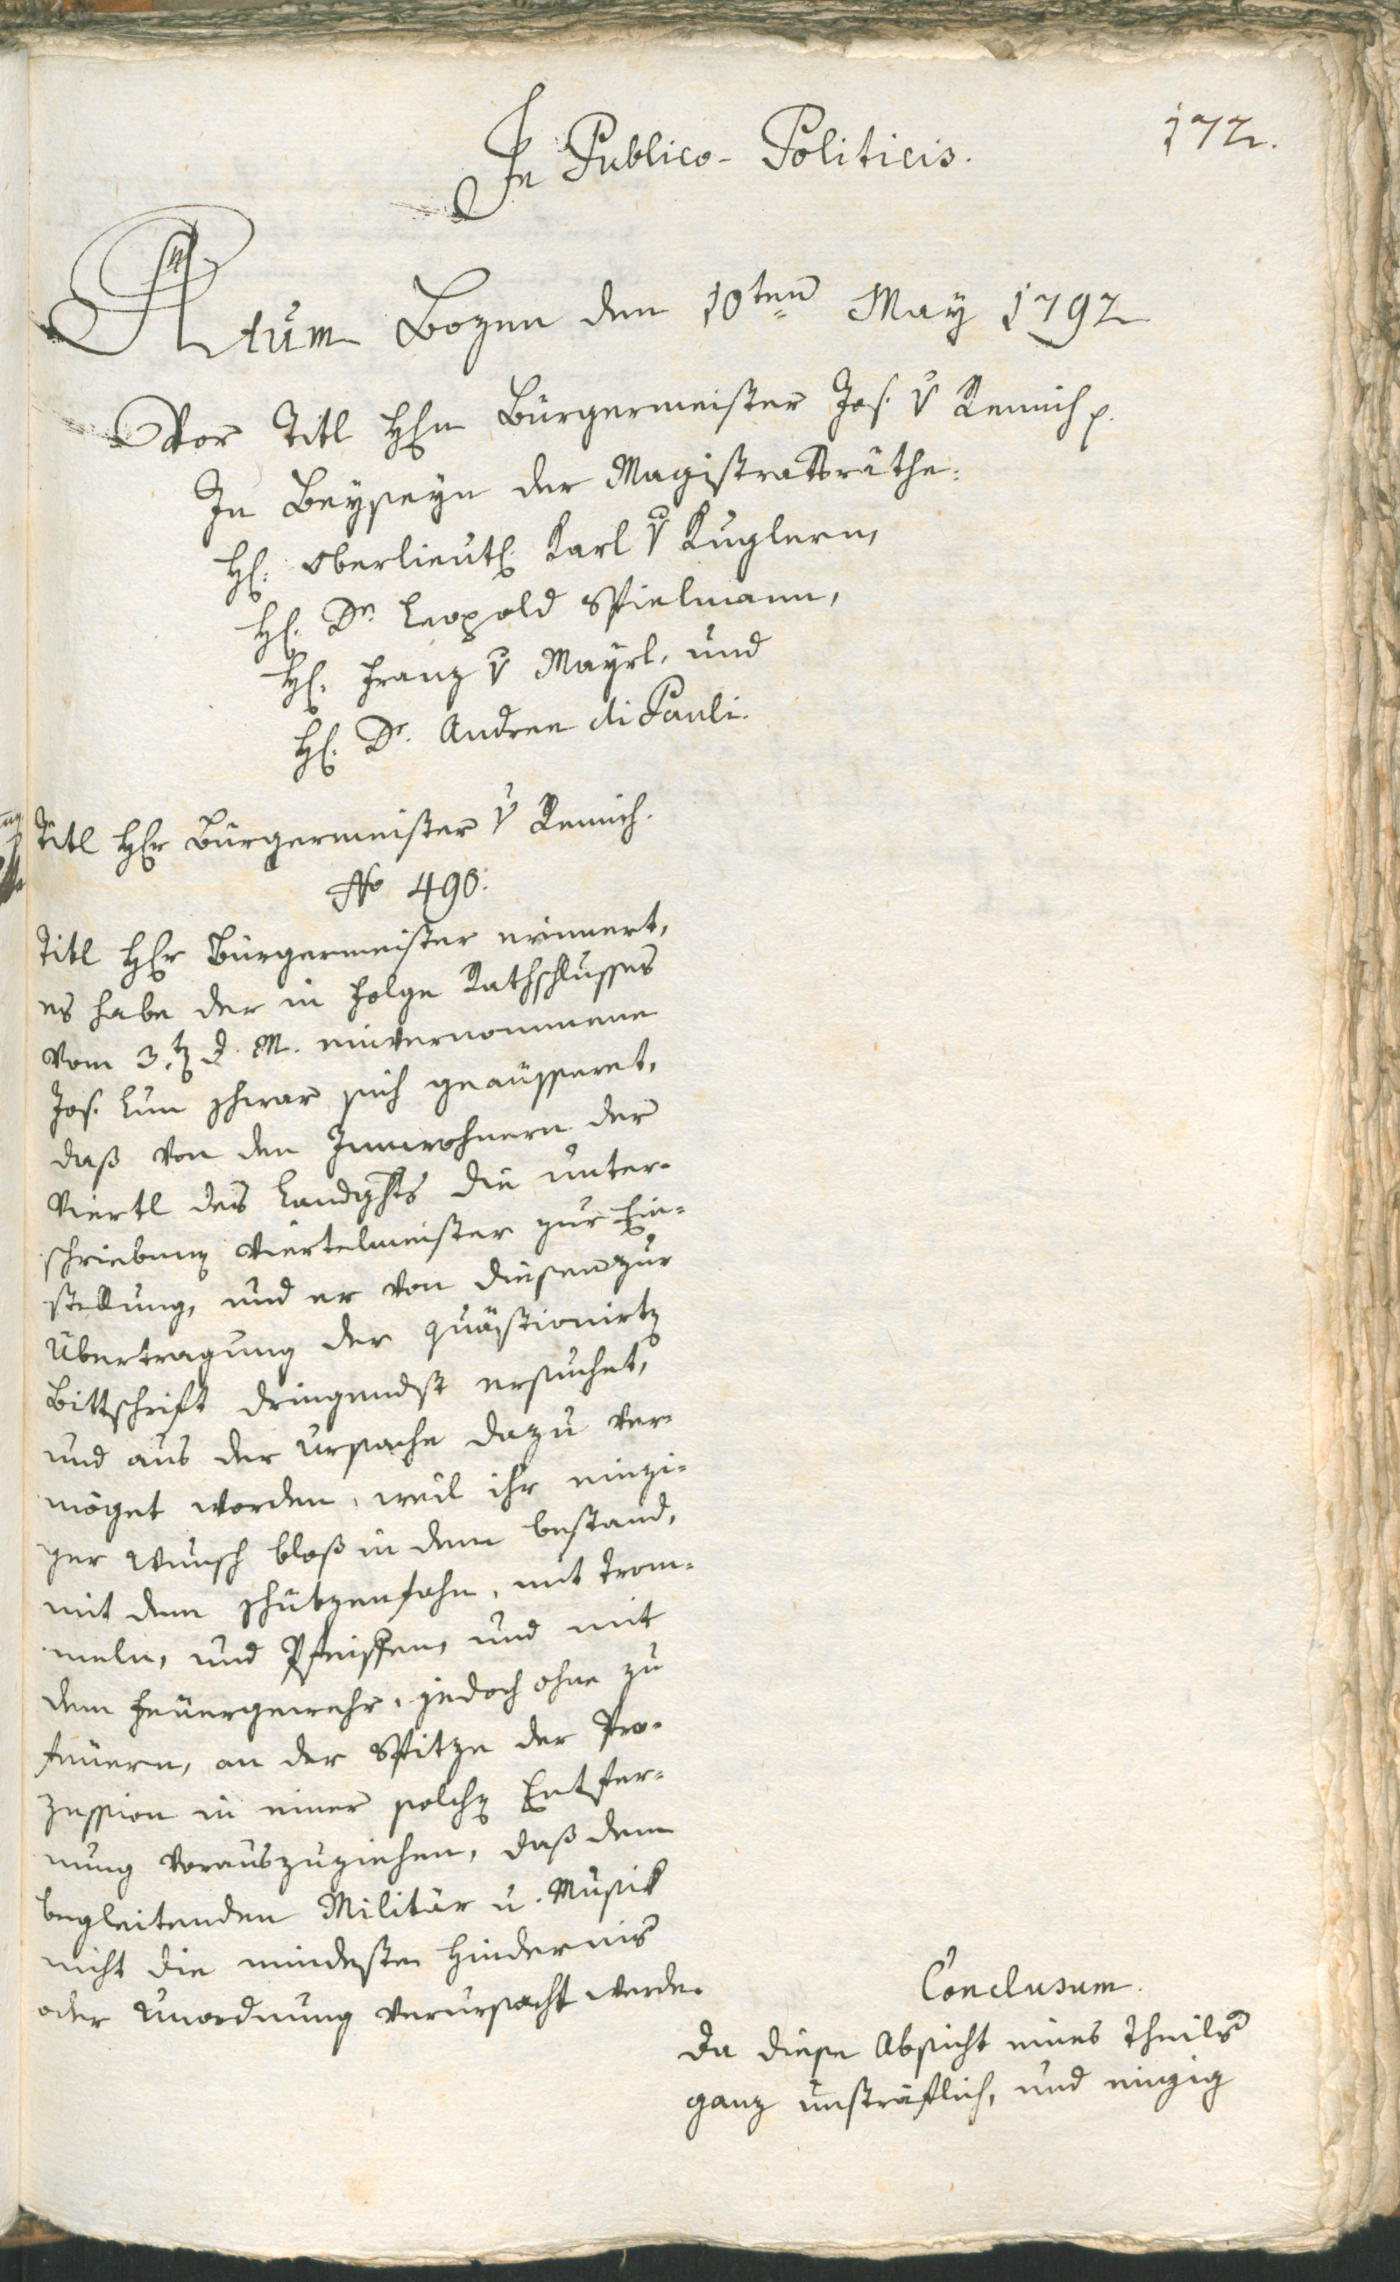 172.
In Publico-Politicis.
Actum Bozen den 10ten May 1792
Vor Titl Hhn Bürgermeister Jos. v Remich p.
In Beyseyn der Magistratsräthe:
H: Oberlieut: Karl v Kuglern,
H: Dr Leopold Spielmann,
H: Franz v Mayrl, und
H: Dr. Andree di Pauli.
Titl Hhr Bürgermeister v Remich.
No 490.
Titl Hhr Bürgermeister erinnert,
es habe der in Folge Rathschlusses
vom 3.t d. M. einvernommene
Jos. Lun schwar sich geäusseret,
daß von den Innwohnern der
Viertl des Landghts die unter-
schriebene Viertelmeister zur Ein-
stellung, und er von diesen zur
Übertragung der quästionirt
Bittschrift dringendst ersuchet,
und aus der Ursache dazu ver-
möget worden, weil ihr einzi-
ger Wunsch bloß in dem bestand,
mit dem Schützenfahn, mit Trom-
meln, und Pfeiffen, und mit
dem Feuergewehr, jedoch ohne zu
feuern, an der Spitze der Pro-
zession in einer solch Entfer-
nung vorauszuziehen, daß dem
begleitenden Militär u. Musik
nicht die mindeste Hindernis
oder Unordnung verursacht werde.
Conclusum.
Da diese Absicht eines Theils
ganz unsträflich, und einzig